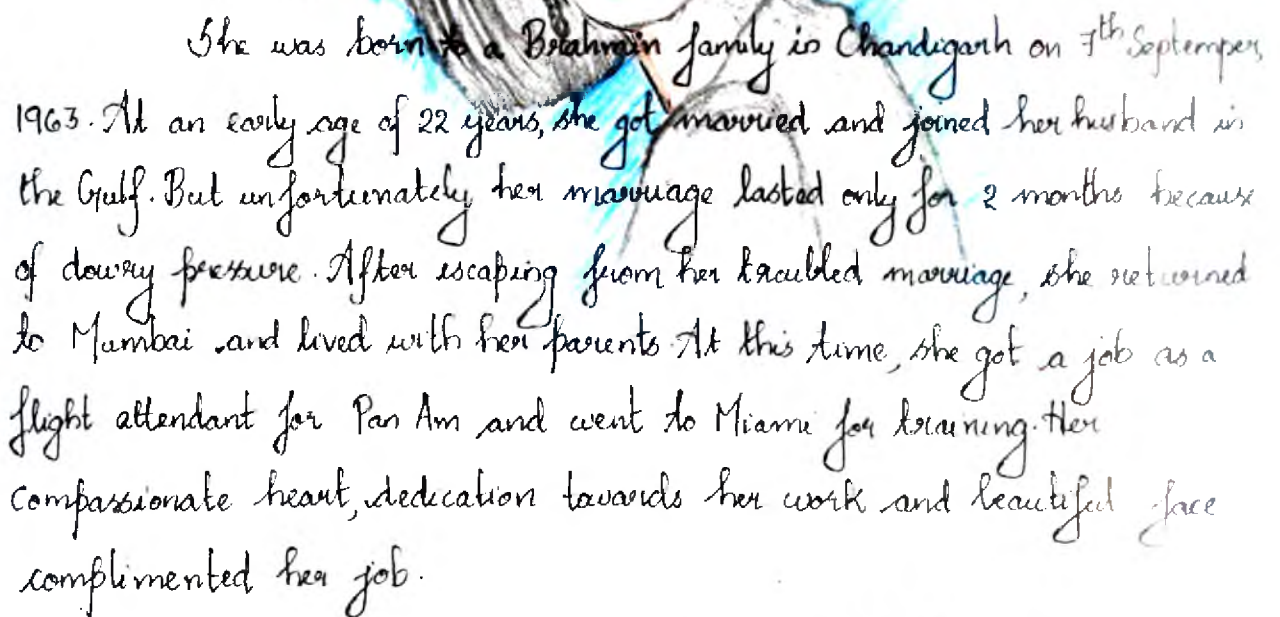 She was born to a Brahmin family in Chandigarh on 7th Septemper,
1963. At an early age of 22 years, she got married and joined her husband in
the Gulf. But unfortunately her marriage lasted only for 2 months because
of dowry pressure. After escaping from her troubled marriage, she returned
to Mumbai and lived with her parents. At this time, she got a job as a
flight attendant for Pan Am and went to Miami for training. Her
compassionate heart, dedication towards her work and beautiful face
complimented her job.